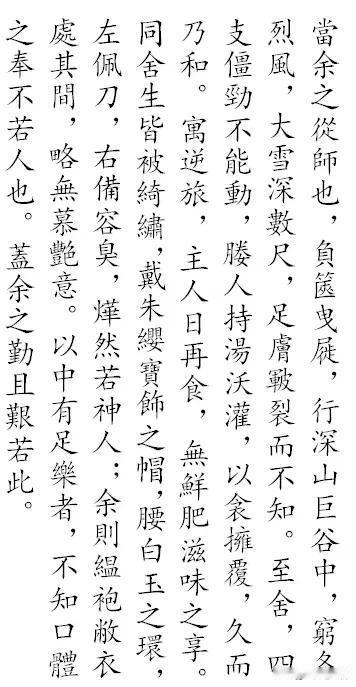 當余之從師也，負篋曳屣，行深山巨谷中，窮冬
烈風，大雪深數尺，足膚皸裂而不知。至舍，四
支僵勁不能動，媵人持湯沃灌，以衾擁覆，久而
乃和。寓逆旅，主人日再食，無鮮肥滋味之享。
同舍生皆被綺繡，戴朱纓寶飾之帽，腰白玉之環，
左佩刀，右備容臭，燁然若神人；余則緼袍敝衣
處其間，略無慕艷意。以中有足樂者，不知口體
之奉不若人也。蓋余之勤且艱若此。